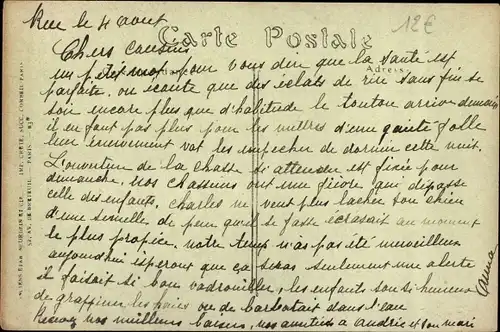 Rue le 4 aout
12€
Carte Postale
Chers cousins
un petit mot pour vous dire que la santé est
Adresse
parfaite, on écoute que des éclats de rire sans fin se
son encore plus que d'habitude le tonton arrive demain
il en faut pas plus pour les mettres d'une gaité folle
leur énervement vat les empecher de dormir cette nuit.
L'ouverture de la chasse si attendue est fixée pour
dimanche, nos chasseurs ont une fièvre qui dépasse
celle des enfants. Charles ne veut plus lacher son chien
d'une semelle de peur qu'il se fasse écrasait au moment
le plus propice. notre temp n'as pas été merveilleux
aujourdhui esperont que ça seras seulement une alerte
il faisait si bon vadrouiller, les enfants son si heureux
de grapiner les bois ou de barbotait dans l'eau
Recevez nos meilleurs baisers, nos amitiées a andrée et son mari
Emma